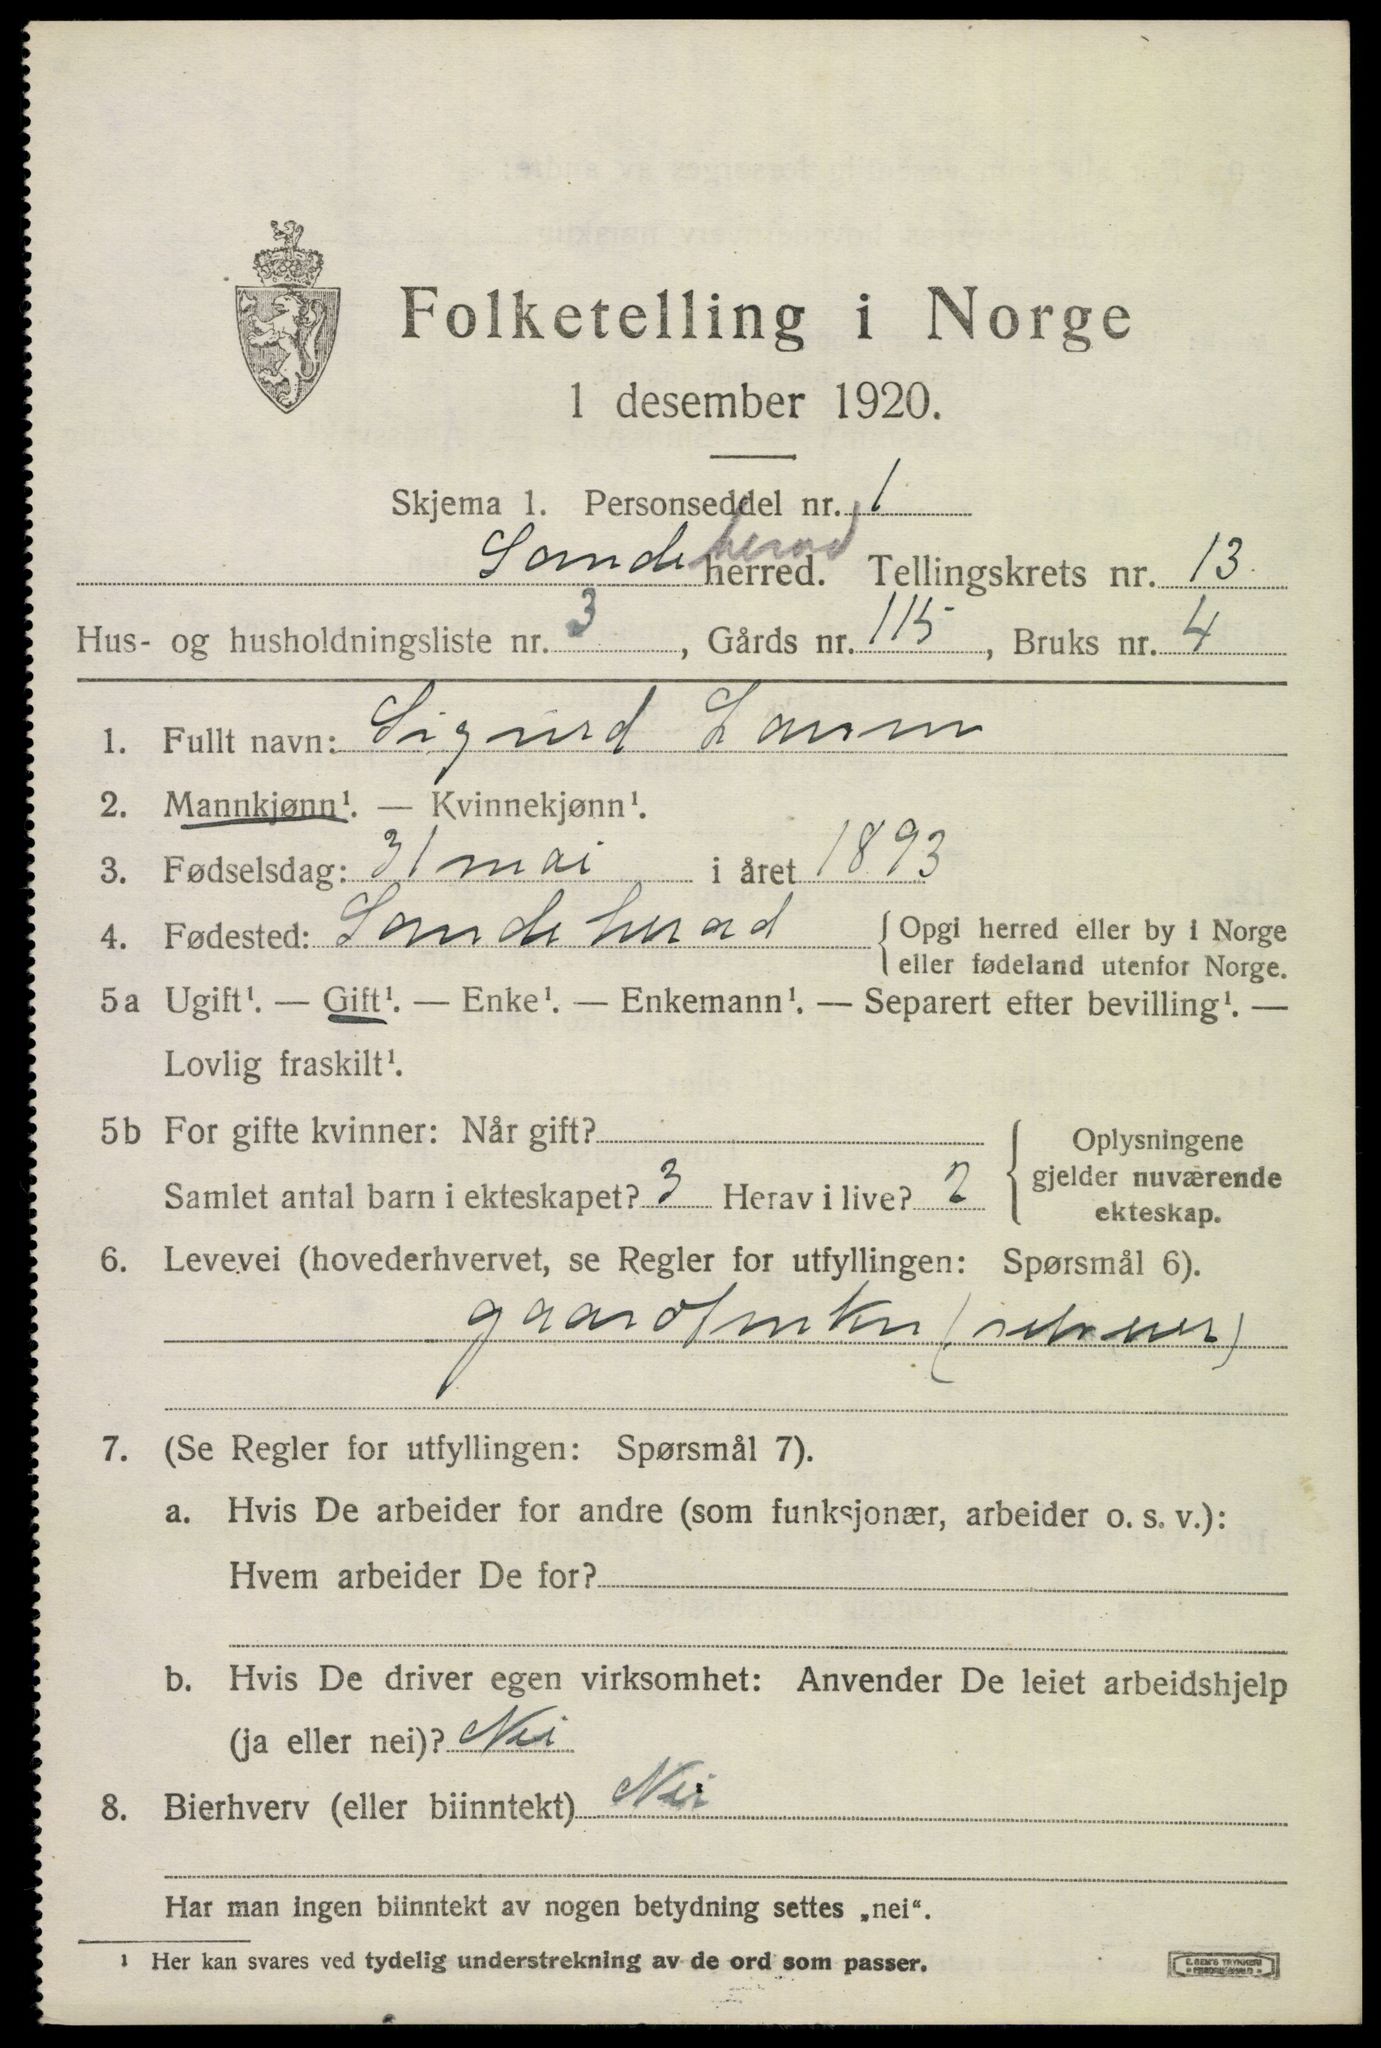 Folketelling i Norge
1 desember 1920.
Skjema 1. Personseddel nr. 1
Sandeherad herred. Tellingskrets nr. 13
Hus- og husholdningsliste nr. 3, Gårds nr. 115, Bruks nr. 4
1. Fullt navn: Sigurd
2. Mannkjønn¹. — Kvinnekjønn¹.
3. Fødselsdag: 31 mai i året 1893
4. Fødested: Sandeherad { Opgi herred eller by i Norge
eller fødeland utenfor Norge.
5a Ugift¹. — Gift¹. — Enke¹. — Enkemann¹. — Separert efter bevilling¹. —
Lovlig fraskilt¹.
5b For gifte kvinner: Når gift?
Samlet antal barn i ekteskapet? 3 Herav i live? 2
{ Oplysningene
gjelder nuværende
ekteskap.
6. Levevei (hovederhvervet, se Regler for utfyllingen: Spørsmål 6).
gaardbruker (selveier)
7. (Se Regler for utfyllingen: Spørsmål 7).
a. Hvis De arbeider for andre (som funksjonær, arbeider o. s. v.):
Hvem arbeider De for?
b. Hvis De driver egen virksomhet: Anvender De leiet arbeidshjelp
(ja eller nei)? Nei
8. Bierhverv (eller biinntekt) Nei
Har man ingen biinntekt av nogen betydning settes „nei“.
¹ Her kan svares ved tydelig understrekning av de ord som passer.